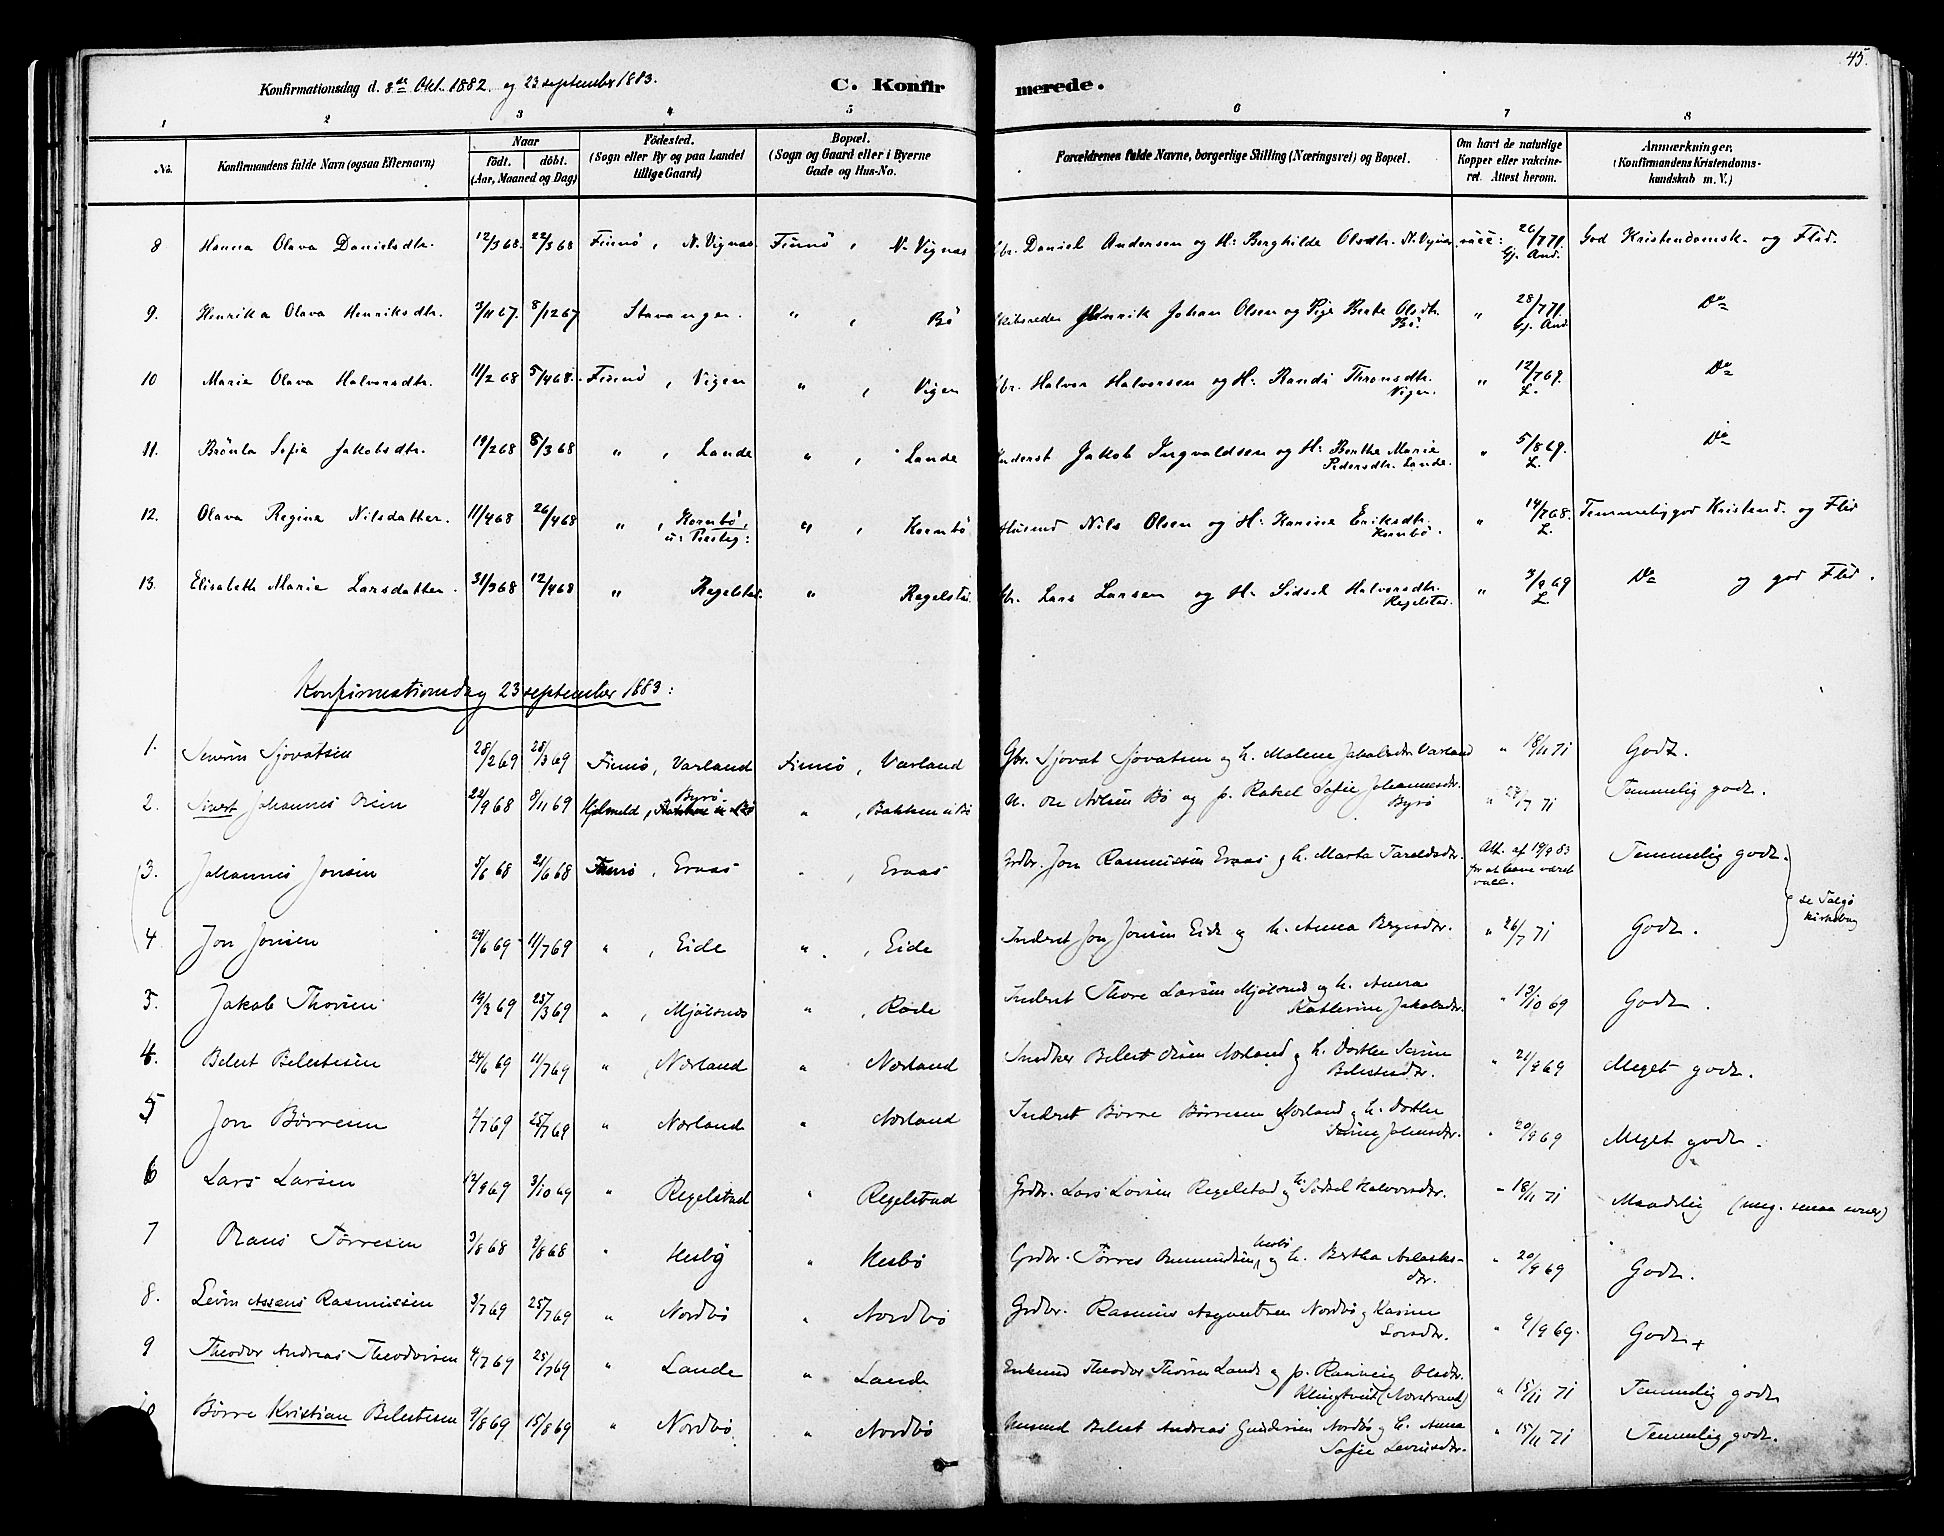 45.
Konfirmationsdag d. 8de Okt. 1882. og 23 september 1883.
C. Konfirmerede.
1 2 3 4 5 6 7 8
No.
Konfirmandens fulde Navn (ogsaa Efternavn)
Naar
födt. döbt.
(Aar, Maaned og Dag)
Födested.
(Sogn eller By og paa Landet
tillige Gaard)
Bopæl.
(Sogn og Gaard eller i Byerne
Gade og Hus-No.
Forældrenes fulde Navne, borgerlige Stilling (Næringsvei) og Bopæl.
Om havt de naturlige
Kopper eller vakcine-
ret. Attest herom.
Anmærkninger,
(Konfirmandens Kristendoms-
kundskab m. V.)
8 Hanna Olava Danielsdtr. 12/3 68. 22/3 68 Finnö, N. Vignæs. Finnö, N. Vignæs Gbr. Daniel Andersen og H: Berghilde Olsdtr. N. Vignæs. vacc: 26/7 71. God Kristendomsk. og Flid.
Gj. And.
9. Henrika Olava Henriksdtr. 3/11 67. 8/12 67 Stavanger. " , Bö Skibsreder Henrik Johan Olsen og Pige Berte Olsdtr. " 28/7 71. Do
Bö. Gj. And
10 Marie Olava Halvorsdtr. 11/2 68 5/4 68. Finnö, Vigen " , Vigen Gbr. Halvor Halvorsen og H: Randi Thronsdtr. " 12/7 69. Do
Vigen. L.
11. Brönla Sofie Jakobsdtr. 19/2 68 8/3 68 " , Lande " , Lande Inderst Jakob Ingvaldsen og H: Berthe Marie " 5/8 69. Do
Pedersdtr. Lande. L.
12. Olava Regine Nilsdatter. 11/4 68 26/4 68 " , Kornbö, " , Kornbö Husmd Nils Olsen og H: Karine Eriksdtr. " 14/7 68. Temmelig god Kristend. og Flid
u: Præsteg: Kornbö L.
13. Elisabeth Marie Larsdatter. 31/3 68 12/4 68 " Regelstad. " Regelstad. Gbr. Lars Larsen og H: Sidsel Halvorsdtr. " 3/9 69 Do og god Flid.
Regelstad. L.
Konfirmationsdag 23 september 1883:
1. Severin Sjovatsen 28/2 69 28/3 69 Finnö, Varland Finnö, Varland Gbr. Sjovat Sjovatsen og h. Malene Jakobsdtr Varland " 18/11 71 Godt.
2. Sivert Johannes Olsen 22/9 68 8/11 69 Hjelmeld, Byrö " , Bakken u Bö U. Ole Nilsen Bö og p. Rakel Sofie Johannesdtr. " 7 71 Temmelig godt.
Byrö
3. Johannes Jonsen 5/6 68 21/6 68 Finnö, Eraas " , Eraas Grdbr. Jon Rasmussen Eraas og h. Marta Taraldsdtr. Att. af 19/9 83 Temmelig godt.
for at have været
vacc.
se Talgö
kirkebog
4. Jon Jonsen 29/6 69 11/7 69 " , Eide " , Eide Inderst Jon Jonsen Eide og h. Anna Bergesdtr. " 26/7 71 Godt.
5. Jakob Thorsen 19/3 69 25/3 69 " , Mjölsnæs " , Rede Inderst Thore Larsen Mjölsnæs og h. Anna " 13/10 69 Godt.
Kathrine Jakobsdtr.
4. Belest Belestesen 24/6 69 11/7 69 " Nærland " Nærland Belest Olsen Nærland og h. Dorthe Serine " 21/9 69 Meget godt.
Belestesdtr.
5 Jon Börresen 2/7 69 25/7 69 " Nærland " Nærland Inderst Börre Börresen Nærland og h. Dorthe " 20/9 69 Meget godt.
Serine Johnsdtr.
6 Lars Larsen 12/9 69 3/10 69 " Regelstad " Regelstad Grdbr. Lars Larsen Regelstad og h. Sidsel Halvorsdtr. " 18/11 71 Maadelig (meg. smaa evner)
7 Rasmus Törresen 3/8 68 9/8 68 " Hesby " Hesbö Grdbr. Törres Ommundsen Hesbö og h. Bertha Aslaks- " 20/9 69 Godt.
dtr.
8. Sevrin Assens Rasmussen 3/7 69 25/7 69 " Nordbö " Nordbö Grdbr. Rasmus Asgautsen Nordbö og Karine " 9/9 69. Godt
Larsdtr.
9 Theodor Andreas Theodorsen 4/7 69 25/7 69 " Lande " Lande Enkemd Theodor Thorsen Lande og p. Rannveig Olsdtr.
(Norstrand) " 15/11 71 Temmelig godt
10 Börre Kristian Belestesen 9/8 69 15/8 69 " Nordbö " Nordbö Husmd Belest Andreas Gundersen Nordbö og h. Anna " 15/11 71 Temmelig godt.
Sofie Sevrinsdtr.